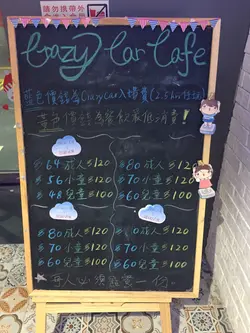 請勿攜帶外
食入內
Crazy Car Cafe
藍色價錢為Crazy Car入場費(2.5hr任玩)
黃色價錢為餐飲最低消費!
$64成人$120
$56小童$120
$48兒童$100
$80成人$120
$70小童$120
$60兒童$100
$80成人$120
$70小童$120
$60兒童$100
成人$120
$70小童$120
$60兒童$100
每人必須 一份